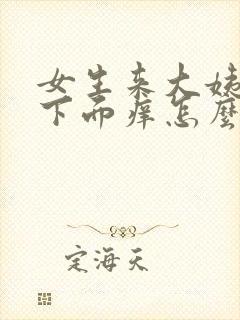 女生来大姨
下面痒怎麽
定海天